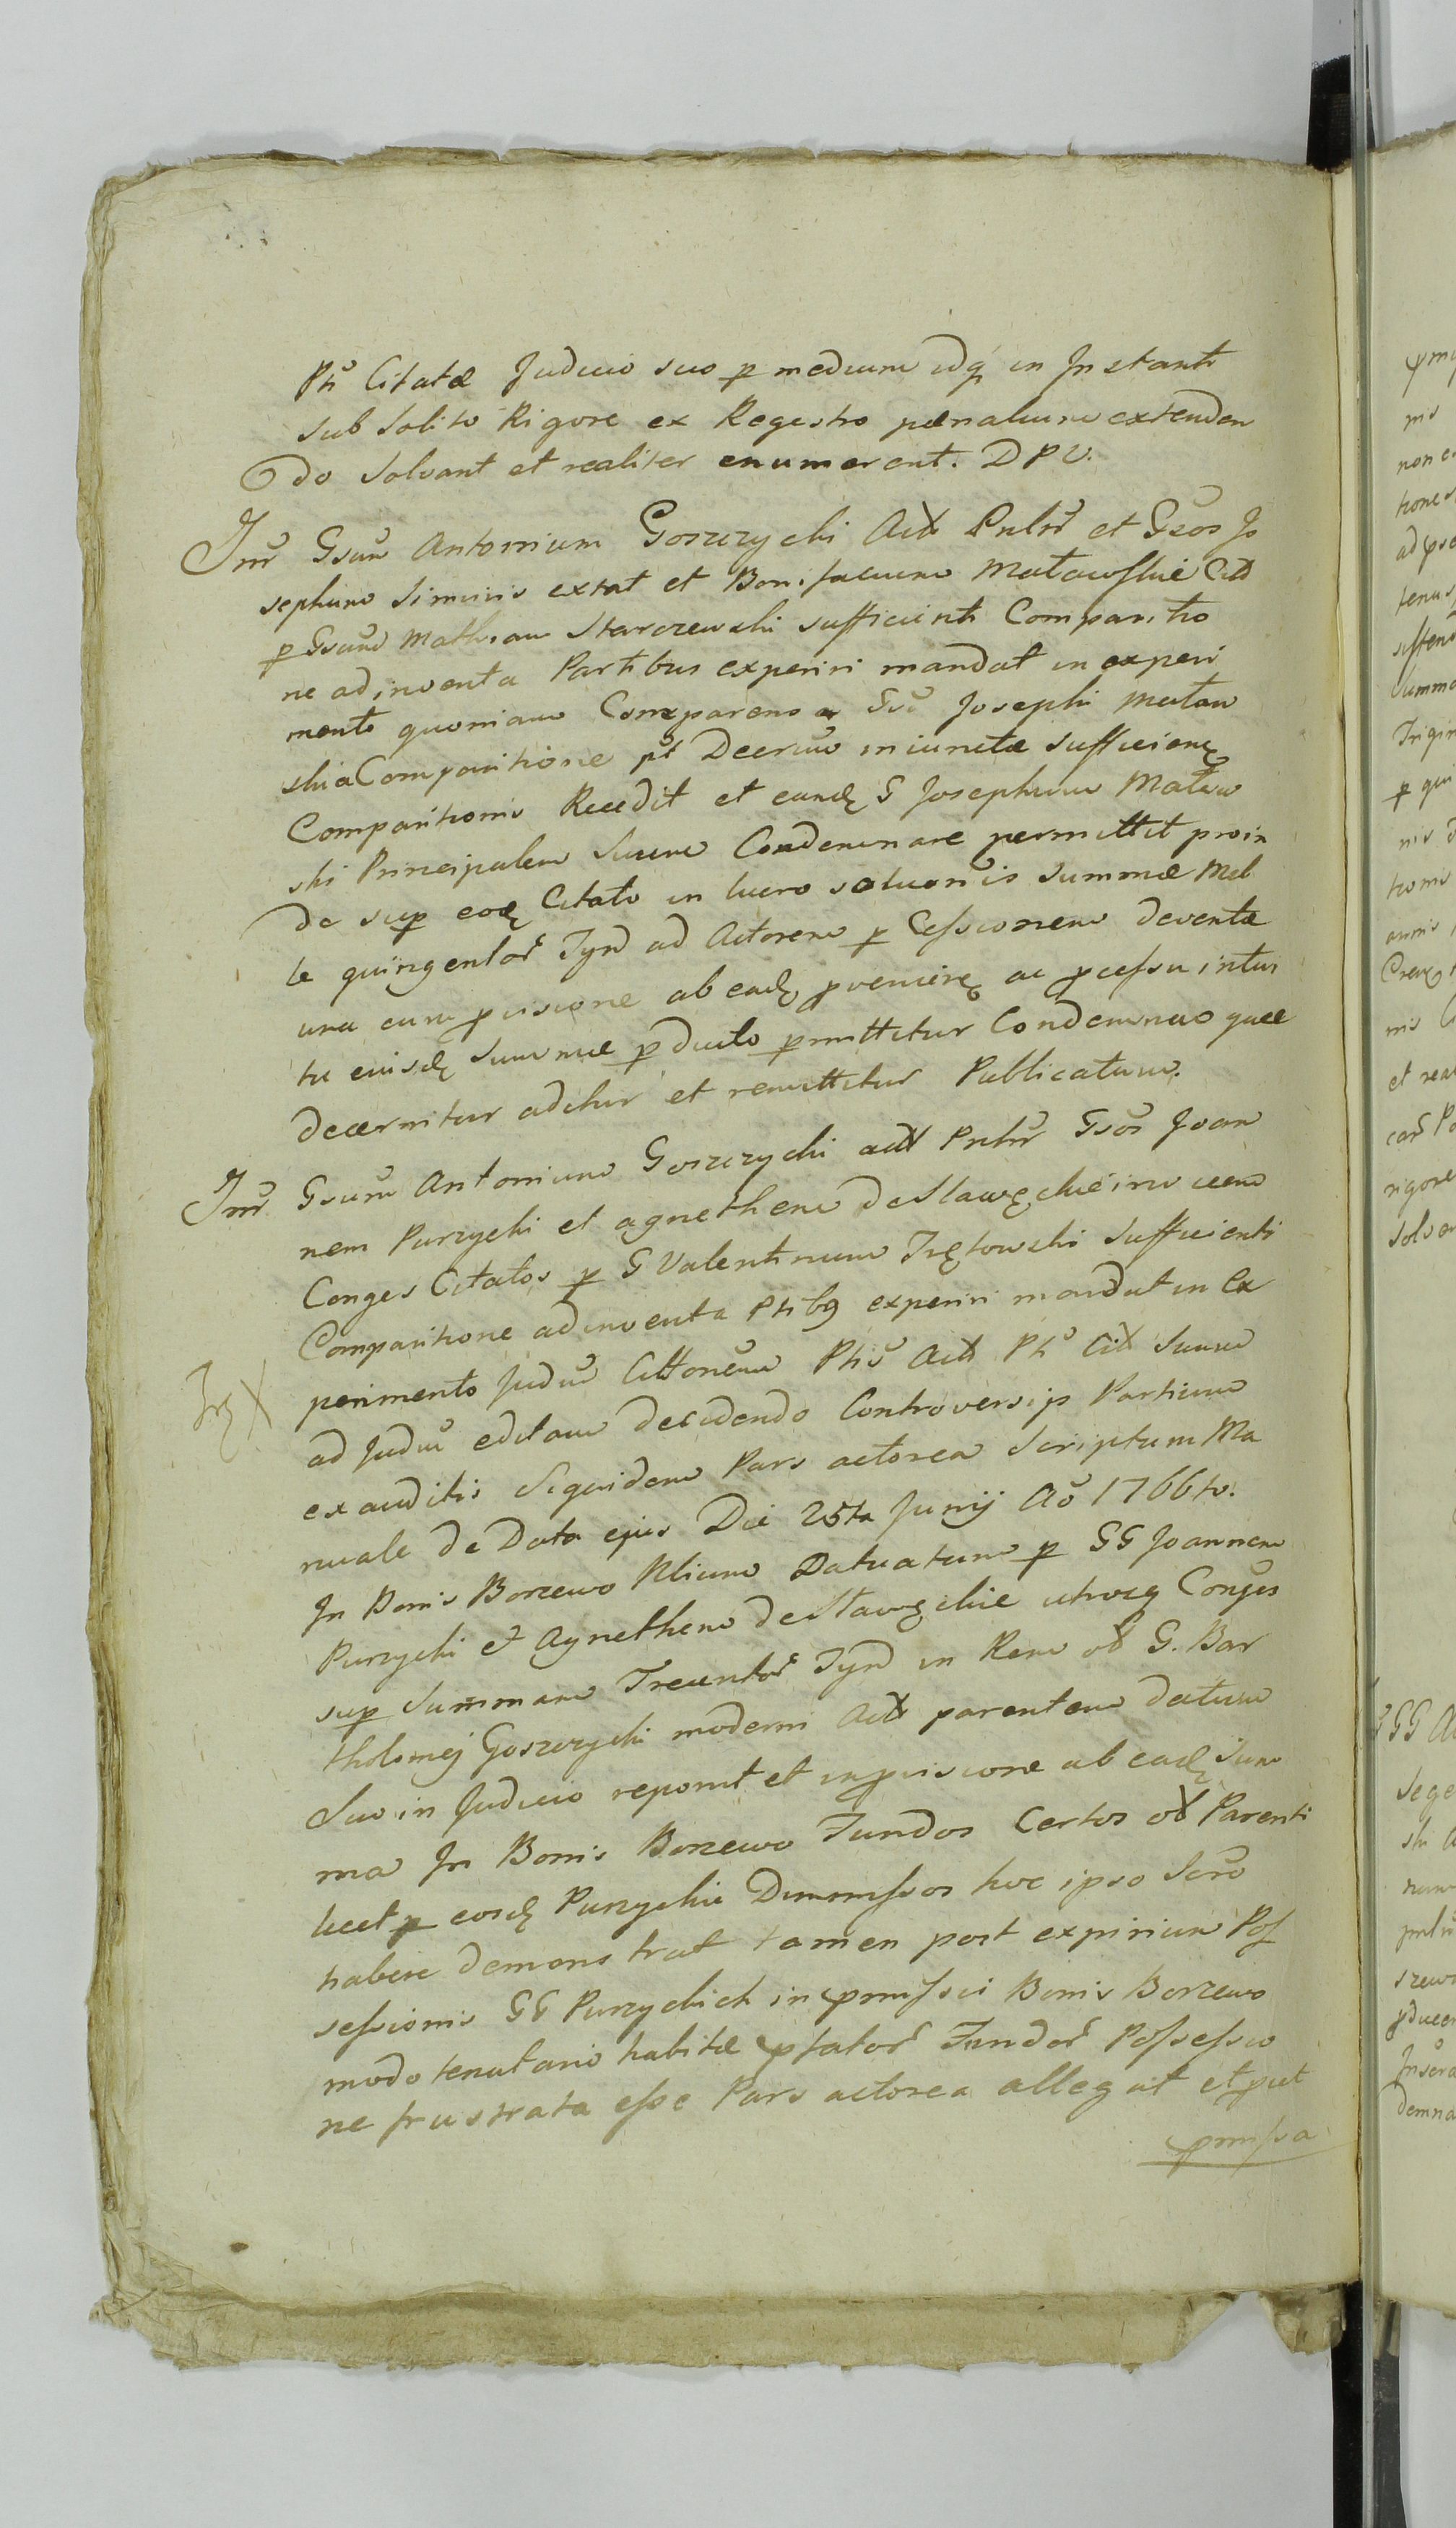 Pti Citatæ Judicio suo p medium idq in Instanti
sub Solito Rigore ex Regestro pænalium extenden
do Solvant et realiter enumerent. DPV.
Intr Gsum Antonium Goszczycki Act Pnlr et Gsos Jo
sephum Siminis extat et Bonifacium Matawskie Citt
p Gsum Mathiam Starczewski sufficienti Comparitio
ne adinventa Partibus experiri mandat in experi
mento quoniam Comparens a Gsi Josephi Mataw
ski a Comparitione pt Decrum iniunctæ sufficien
Comparitionis Recedit et eund G Josephum Mataw
ski Principalem Suum Condemnare permittit proin
de sup eod Citato in lucro solutionis Summæ Mil
le quingentor Tynf ad Actorem p Cessionem deventæ
una cum pvisione ab ead pveniere ac pcessu intui
tu eiusd Summæ p ducto pmittitur Condemnatio quæ
decernitur aditur et remittitur Publicatum.
Intr Gsum Antonium Goszczycki act Pnlr Gsos Joan
nem Purzycki et agnethem de Stawęckie invicem
Conges Citatos p G Valentinum Trętowski Sufficienti
Comparitione adinventa Ptibg experiri mandat in Ex
perimento Judm Cittonem Ptis Act Pti Cit Suum
ad Judm editam decidendo Controversijs Partium
ex auditis Siquidem Pars actorea Scriptum Ma
nuale de Data ejus Die 25ta Junij Ao 1766to.
In Bonis Borzewo Datuatum p GG Joannem
Purzycki et Agnethem de Stawęckie utrosq Conges
sup Summam Trecentor Tynf in Rem ol G. Bar
tholomej Goszczycki moderni Act parentem datum
Suo in Judicio reponit et in pvisione ab ead Sum
ma In Bonis Borzewo Fundos Certos ol Parenti
licet p eosd Purzyckie Dimmissos hoc ipso Scro
habere demonstrat tamen post expirium Pos
sessionis GG Purzyckich in pmissis Bonis Borzewo
modo tenutario habitæ pfator Fundor Possessio
ne frustrata esse Pars actorea allegat et put
pmissa